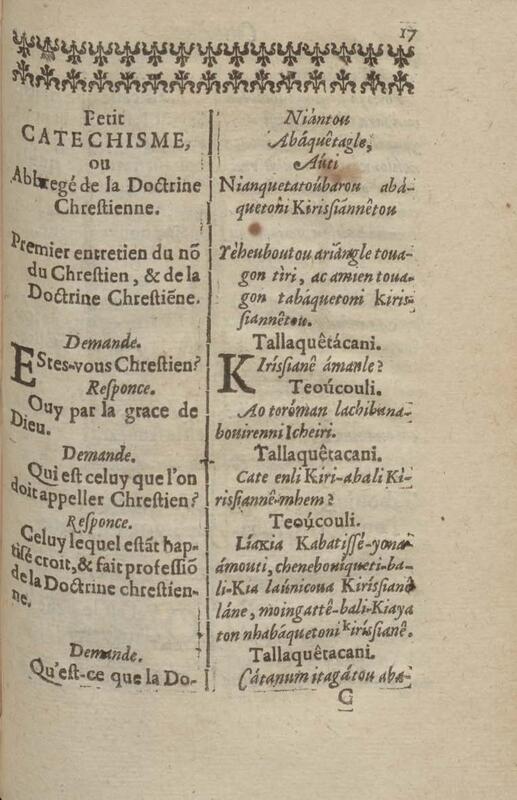 17
Petit
CATECHISME,
ou
Abbregé de la Doctrine
Chrestienne.
Premier entretien du nõ
du Chrestien, & de la
Doctrine Chrestiẽne.
Demande.
Estes-vous Chrestien?
Responce.
Ouy par la grace de
Dieu.
Demande.
Qui est celuy que l'on
doit appeller Chrestien?
Responce.
Celuy lequel estãt bap-
tisé croit, & fait professiõ
de la Doctrine chrestien-
ne.
Demande.
Qu'est-ce que la Do-
Niántou
Abáquêtagle,
Aúti
Nianquetatoúbarou abá-
quetoni Kirissiánnêtou
Yèheuboutou ariángle toua-
gon tìri, ac amien toua-
gon tabáquetoni kiris-
siannêtou.
Tallaquêtácani.
Kirissianê ámanle?
Teoúcouli.
Ao toróman lachibana-
bouirenni Icheiri.
Tallaquêtacani.
Cate enli Kiri-abali Ki-
rissiannê-mhem?
Teoúcouli.
Líakia Kabatissé-yona-
ámouti, cheneboüiqueti-ba-
li-Kia laúnicoua Kiríssianê
láne, moingattê-bali-Kiaya
ton nhabáquetoni kirissianê.
Tallaquêtacani.
Cátanum itagátou aba-
C